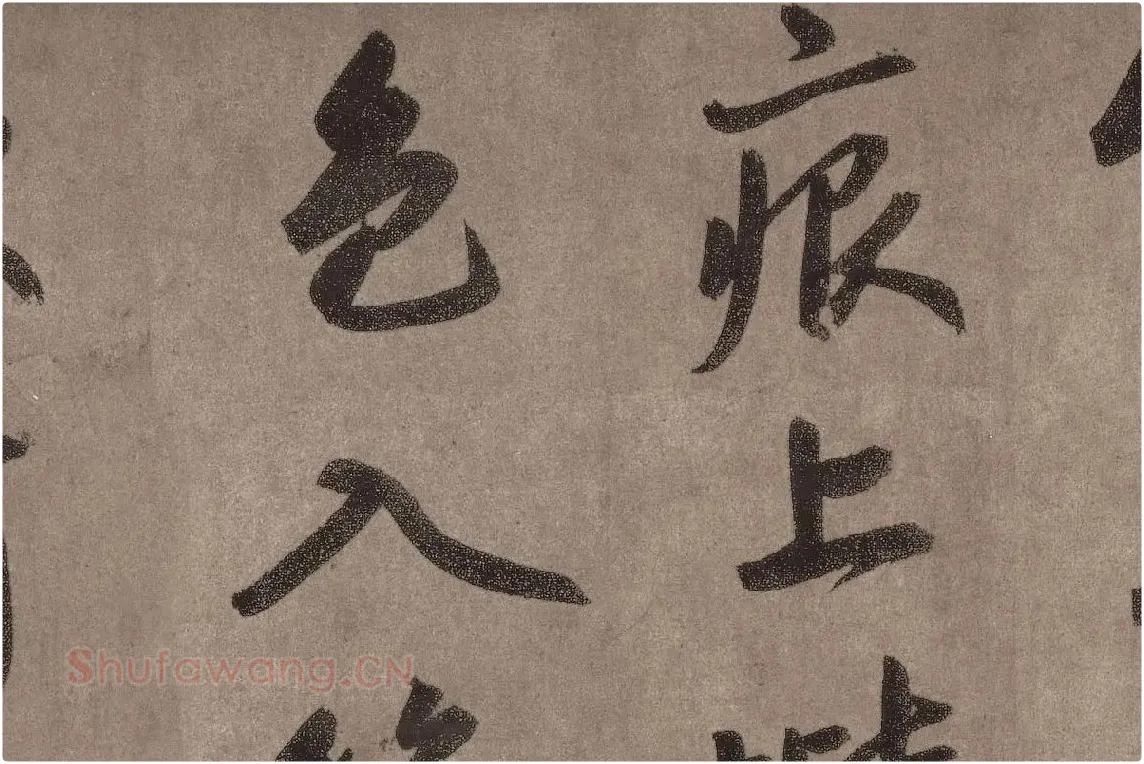 痕上階
色入簾
Shufawang.CN